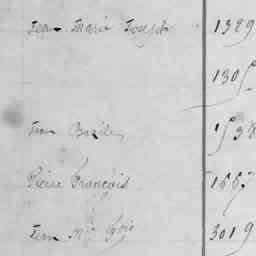 Jean Marie Joseph 1329
1305
Jean Bazile 1538
Pierre François 1687
Jean 3019